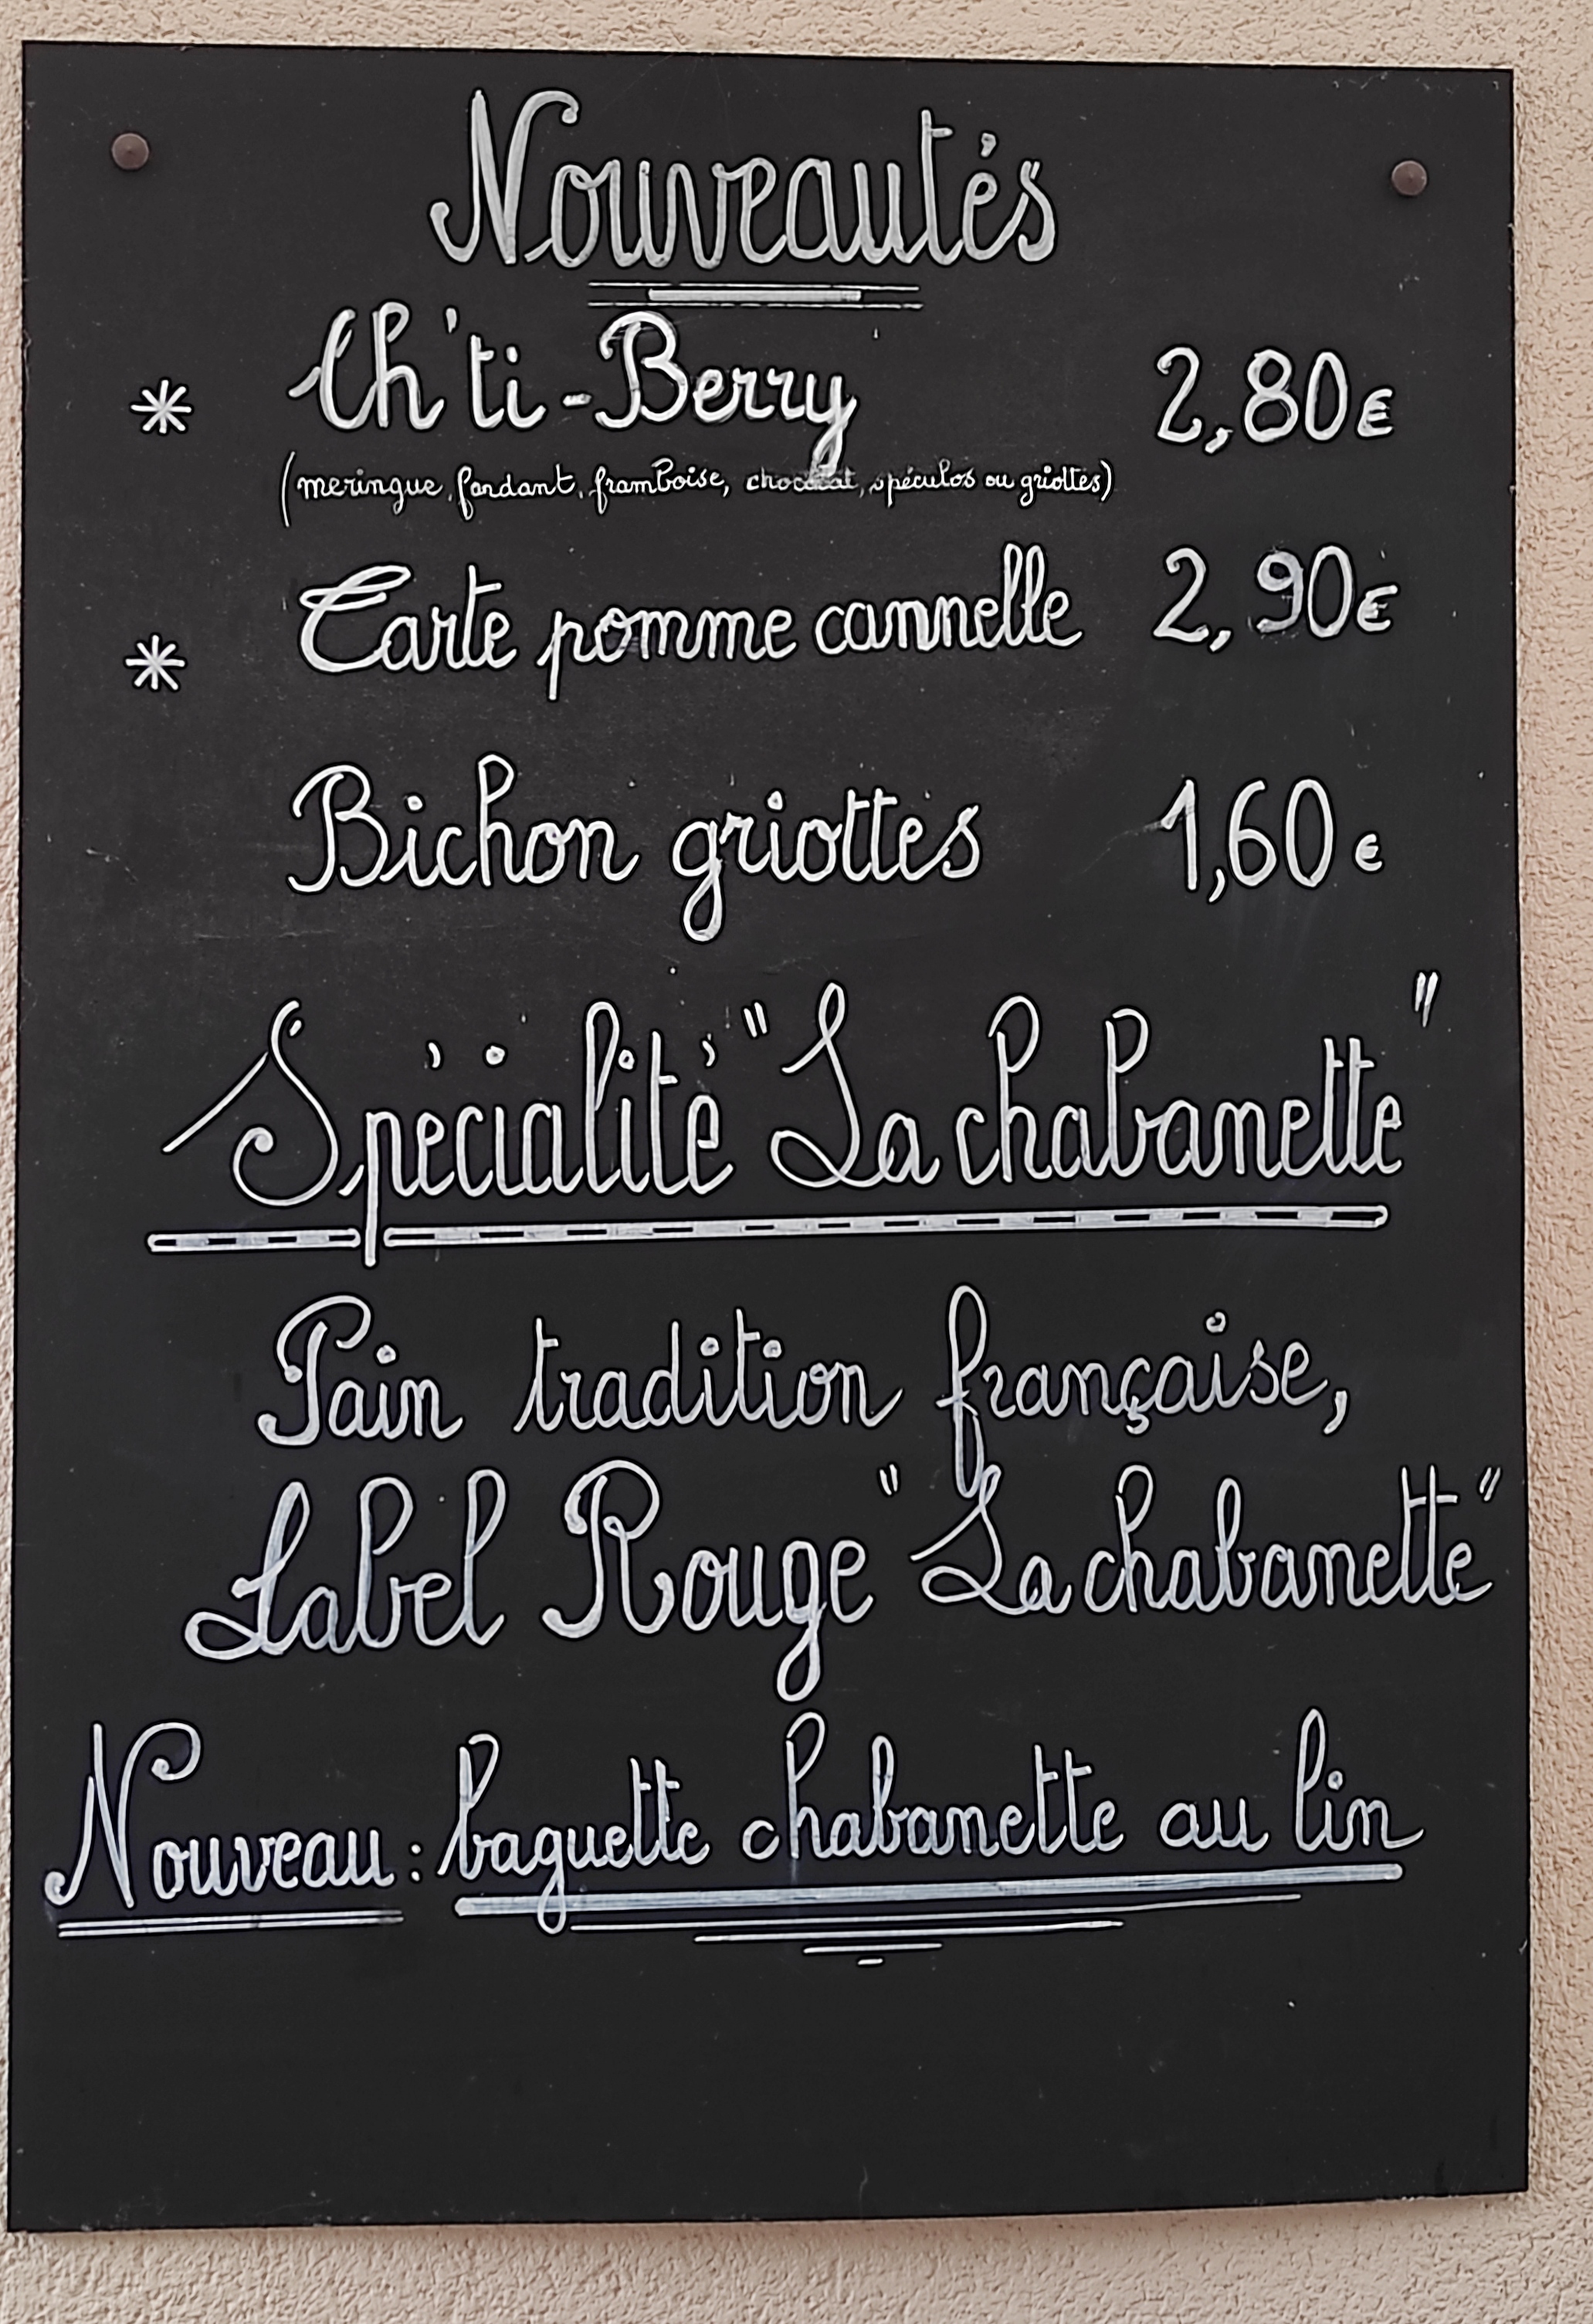 Nouveautés
* Ch'ti-Berry 2,80€
(meringue, fondant, framboise, chocolat, spéculos ou griottes)
* Tarte pomme cannelle 2,90€
Bichon griottes 1,60€
Spécialité "La chabanette"
Pain tradition française,
Label Rouge "La chabanette"
Nouveau : baguette chabanette au lin